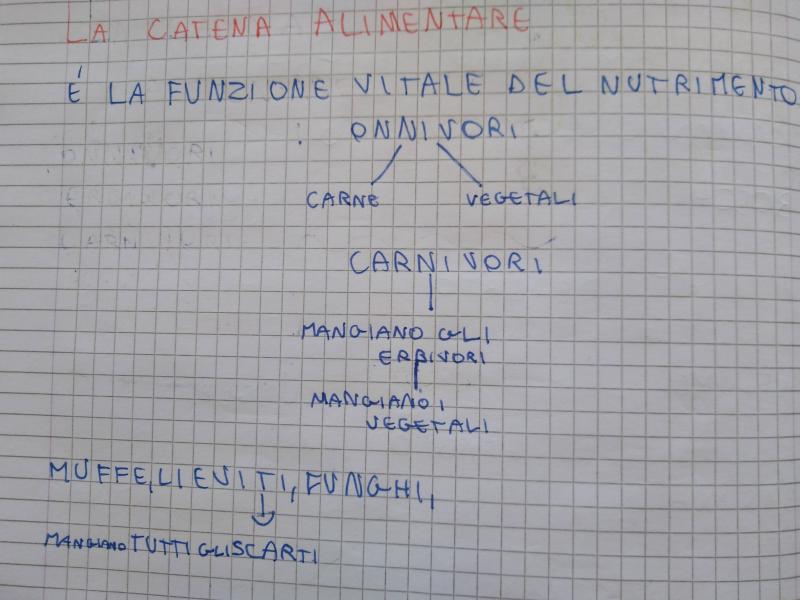 LA CATENA ALIMENTARE
É LA FUNZIONE VITALE DEL NUTRIMENTO
: ONNIVORI
CARNE VEGETALI
CARNIVORI
MANGIANO GLI
ERBIVORI
MANGIANO I
VEGETALI
MUFFE, LIEVITI, FUNGHI,
MANGIANO TUTTI GLI SCARTI